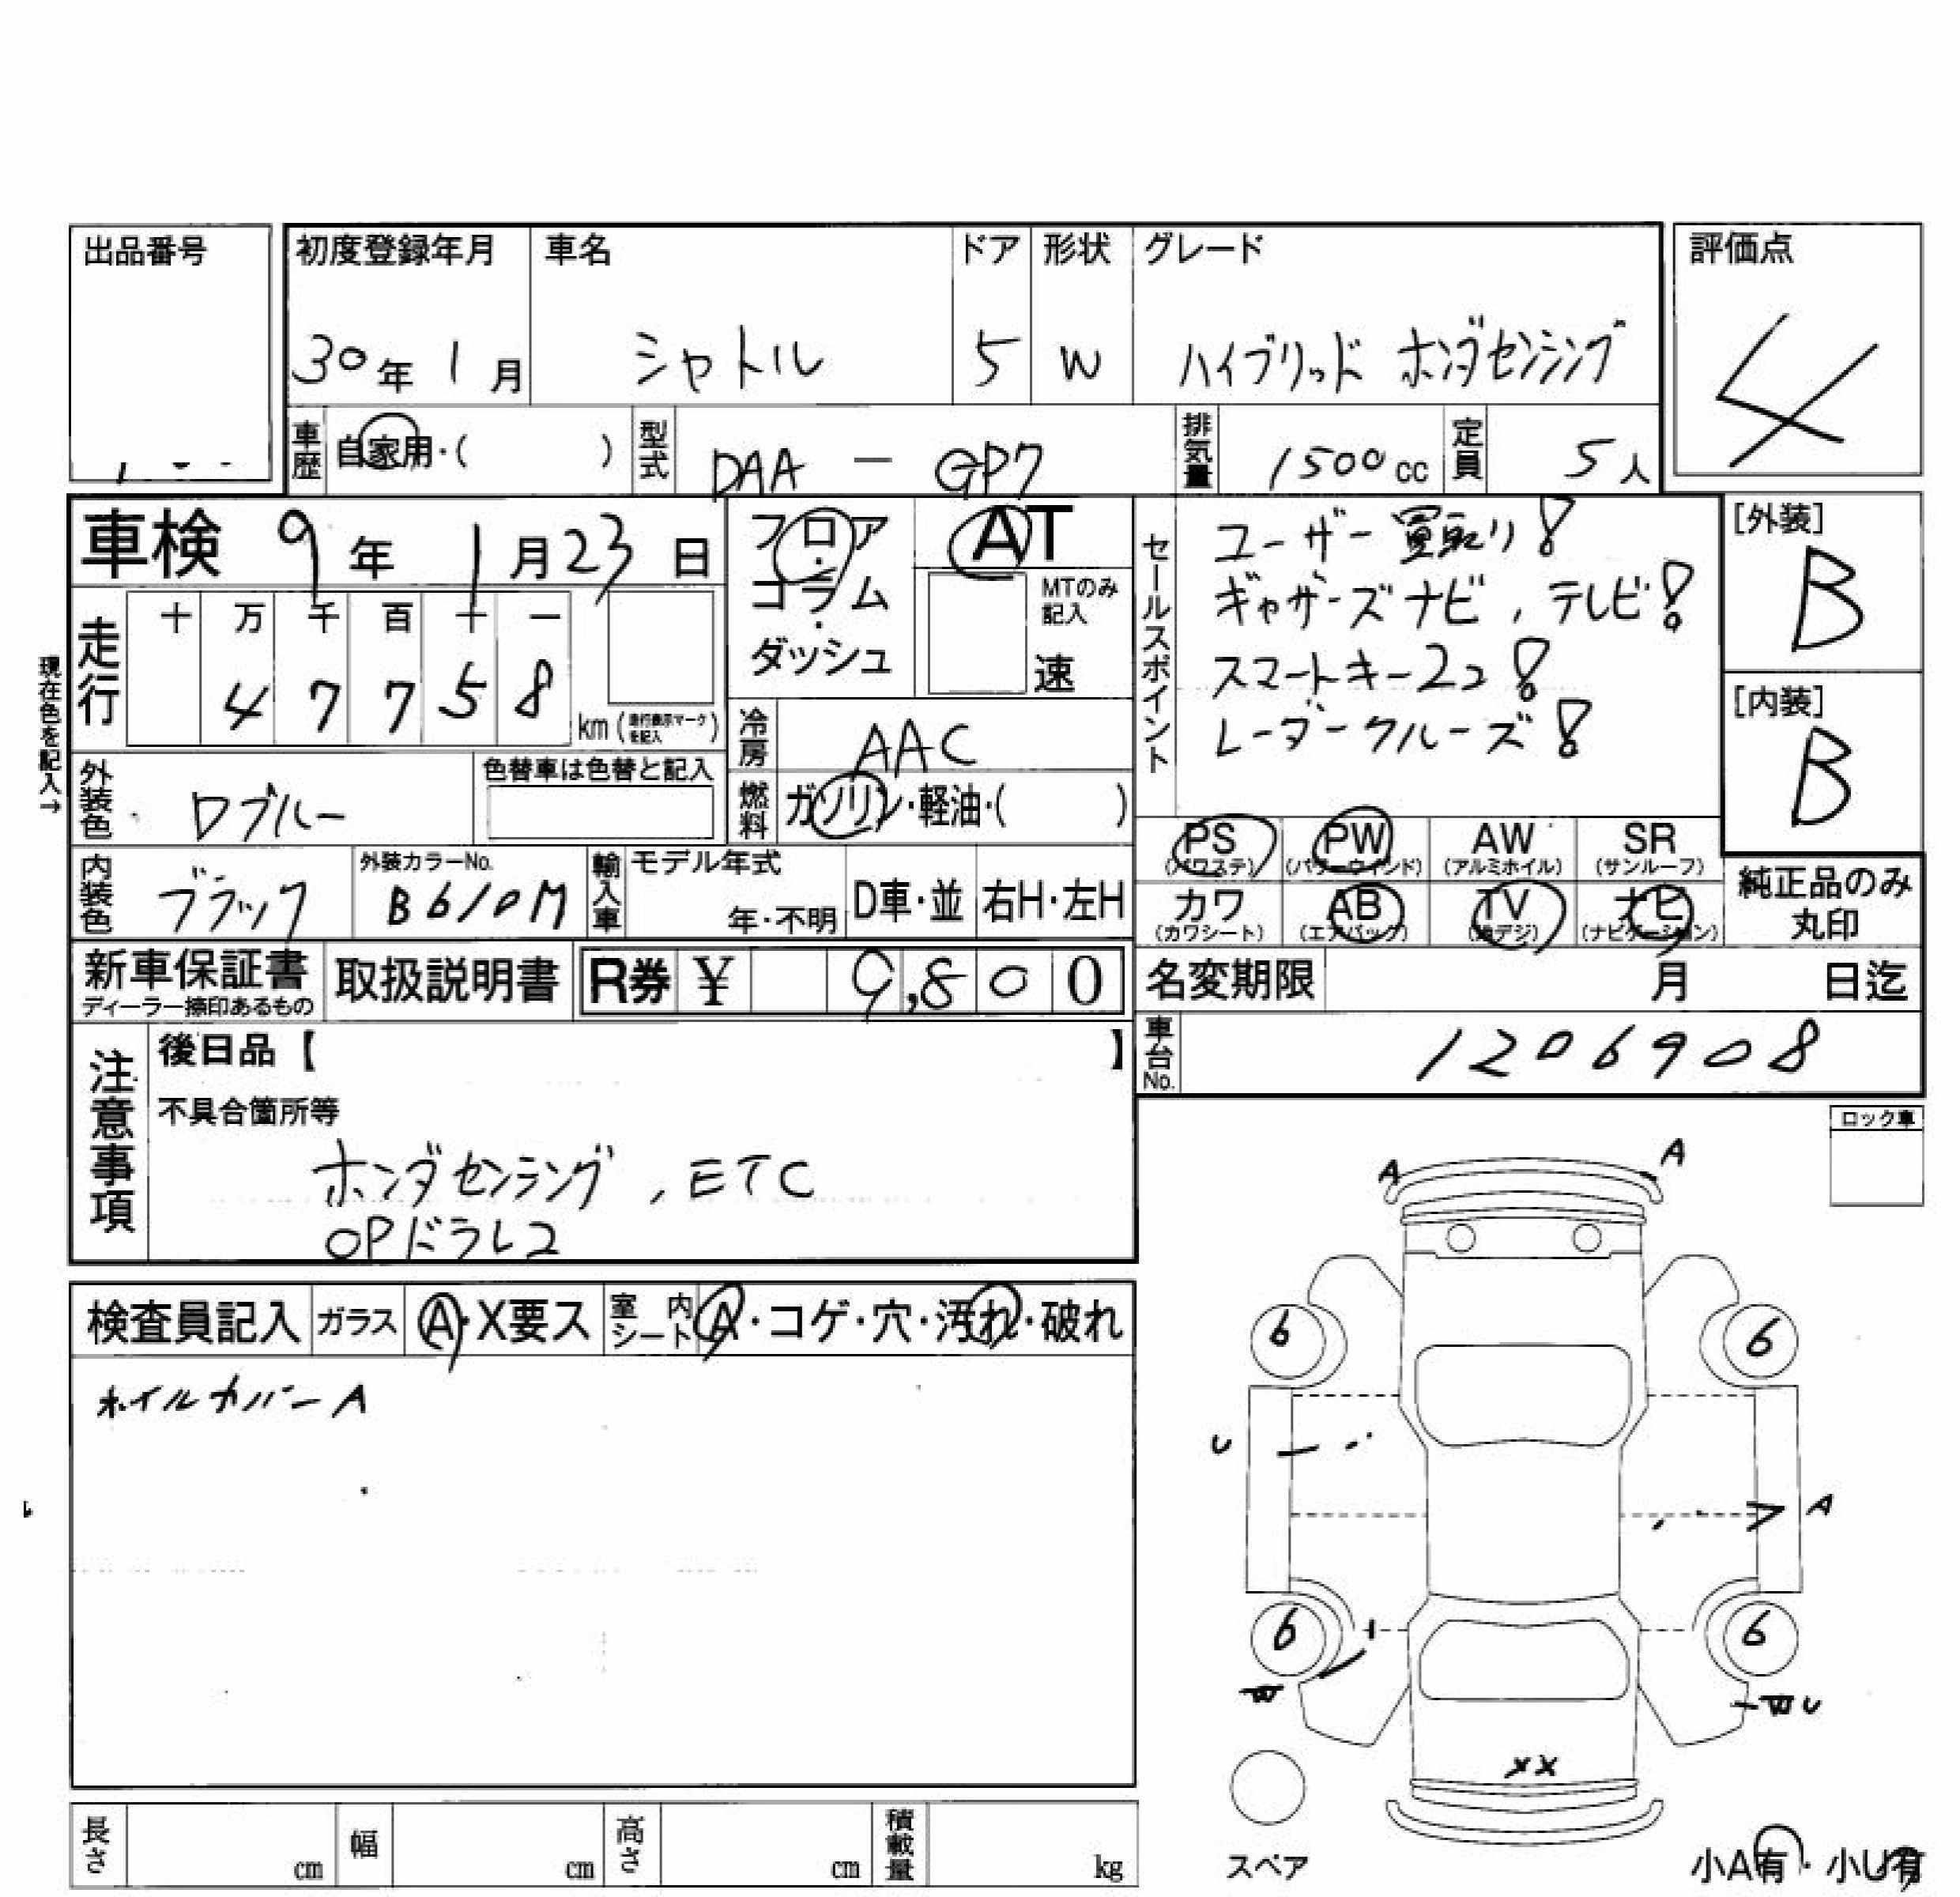 出品番号
初度登録年月 車名 ドア 形状 グレード 評価点
30年 1月 シャトル 5 W ハイブリッド ホンダセンシング 4
車歴 自家用・( ) 型式 DAA - GP7 排気量 1500cc 定員 5人
車検 9年 1月23日 フロア・コラム・ダッシュ AT
MTのみ記入 速
現在色を記入→
走行 十 万 千 百 十 一
4 7 7 5 8 km (走行表示マークを記入)
冷房 AAC
燃料 ガソリン・軽油・( )
外装色 Dブルー 色替車は色替と記入
内装色 ブラック 外装カラーNo. B610M 輸入車 モデル年式 年・不明 D車・並 右H・左H
セールスポイント
ユーザー買取り!
ギャザーズナビ,テレビ!
スマートキー2コ!
レーダークルーズ!
[外装] B
[内装] B
PS (パワステ) PW (パワーウィンド) AW (アルミホイル) SR (サンルーフ)
カワ (カワシート) AB (エアバック) TV (地デジ) ナビ (ナビゲーション)
純正品のみ丸印
新車保証書 ディーラー捺印あるもの 取扱説明書 R券 ¥ 9,800
名変期限 月 日迄
車台No. 1206908
注意事項
後日品【 】
不具合箇所等
ホンダセンシング,ETC
OPドラレコ
ロック車
検査員記入 ガラス A・X要ス 室内シート A・コゲ・穴・汚れ・破れ
ホイルカバーA
A A
6 6
U
A
6 6
W
W U
XX
スペア
小A有・小U有
長さ cm 幅 cm 高さ cm 積載量 kg